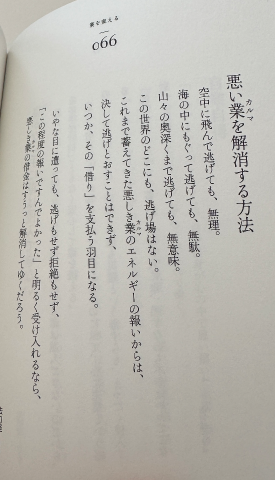 業を変える
066
悪い業を解消する方法
カルマ
空中に飛んで逃げても、無理。
海の中にもぐって逃げても、無駄。
山々の奥深くまで逃げても、無意味。
この世界のどこにも、逃げ場はない。
これまで蓄えてきた悪しき業のエネルギーの報いからは、
カルマ
決して逃げとおすことはできず、
いつか、その「借り」を支払う羽目になる。
いやな目に遭っても、逃げもせず拒絶もせず、
「この程度の報いですんでよかった」と明るく受け入れるなら、
悪しき業の借金はすうっと解消してゆくだろう。
カルマ